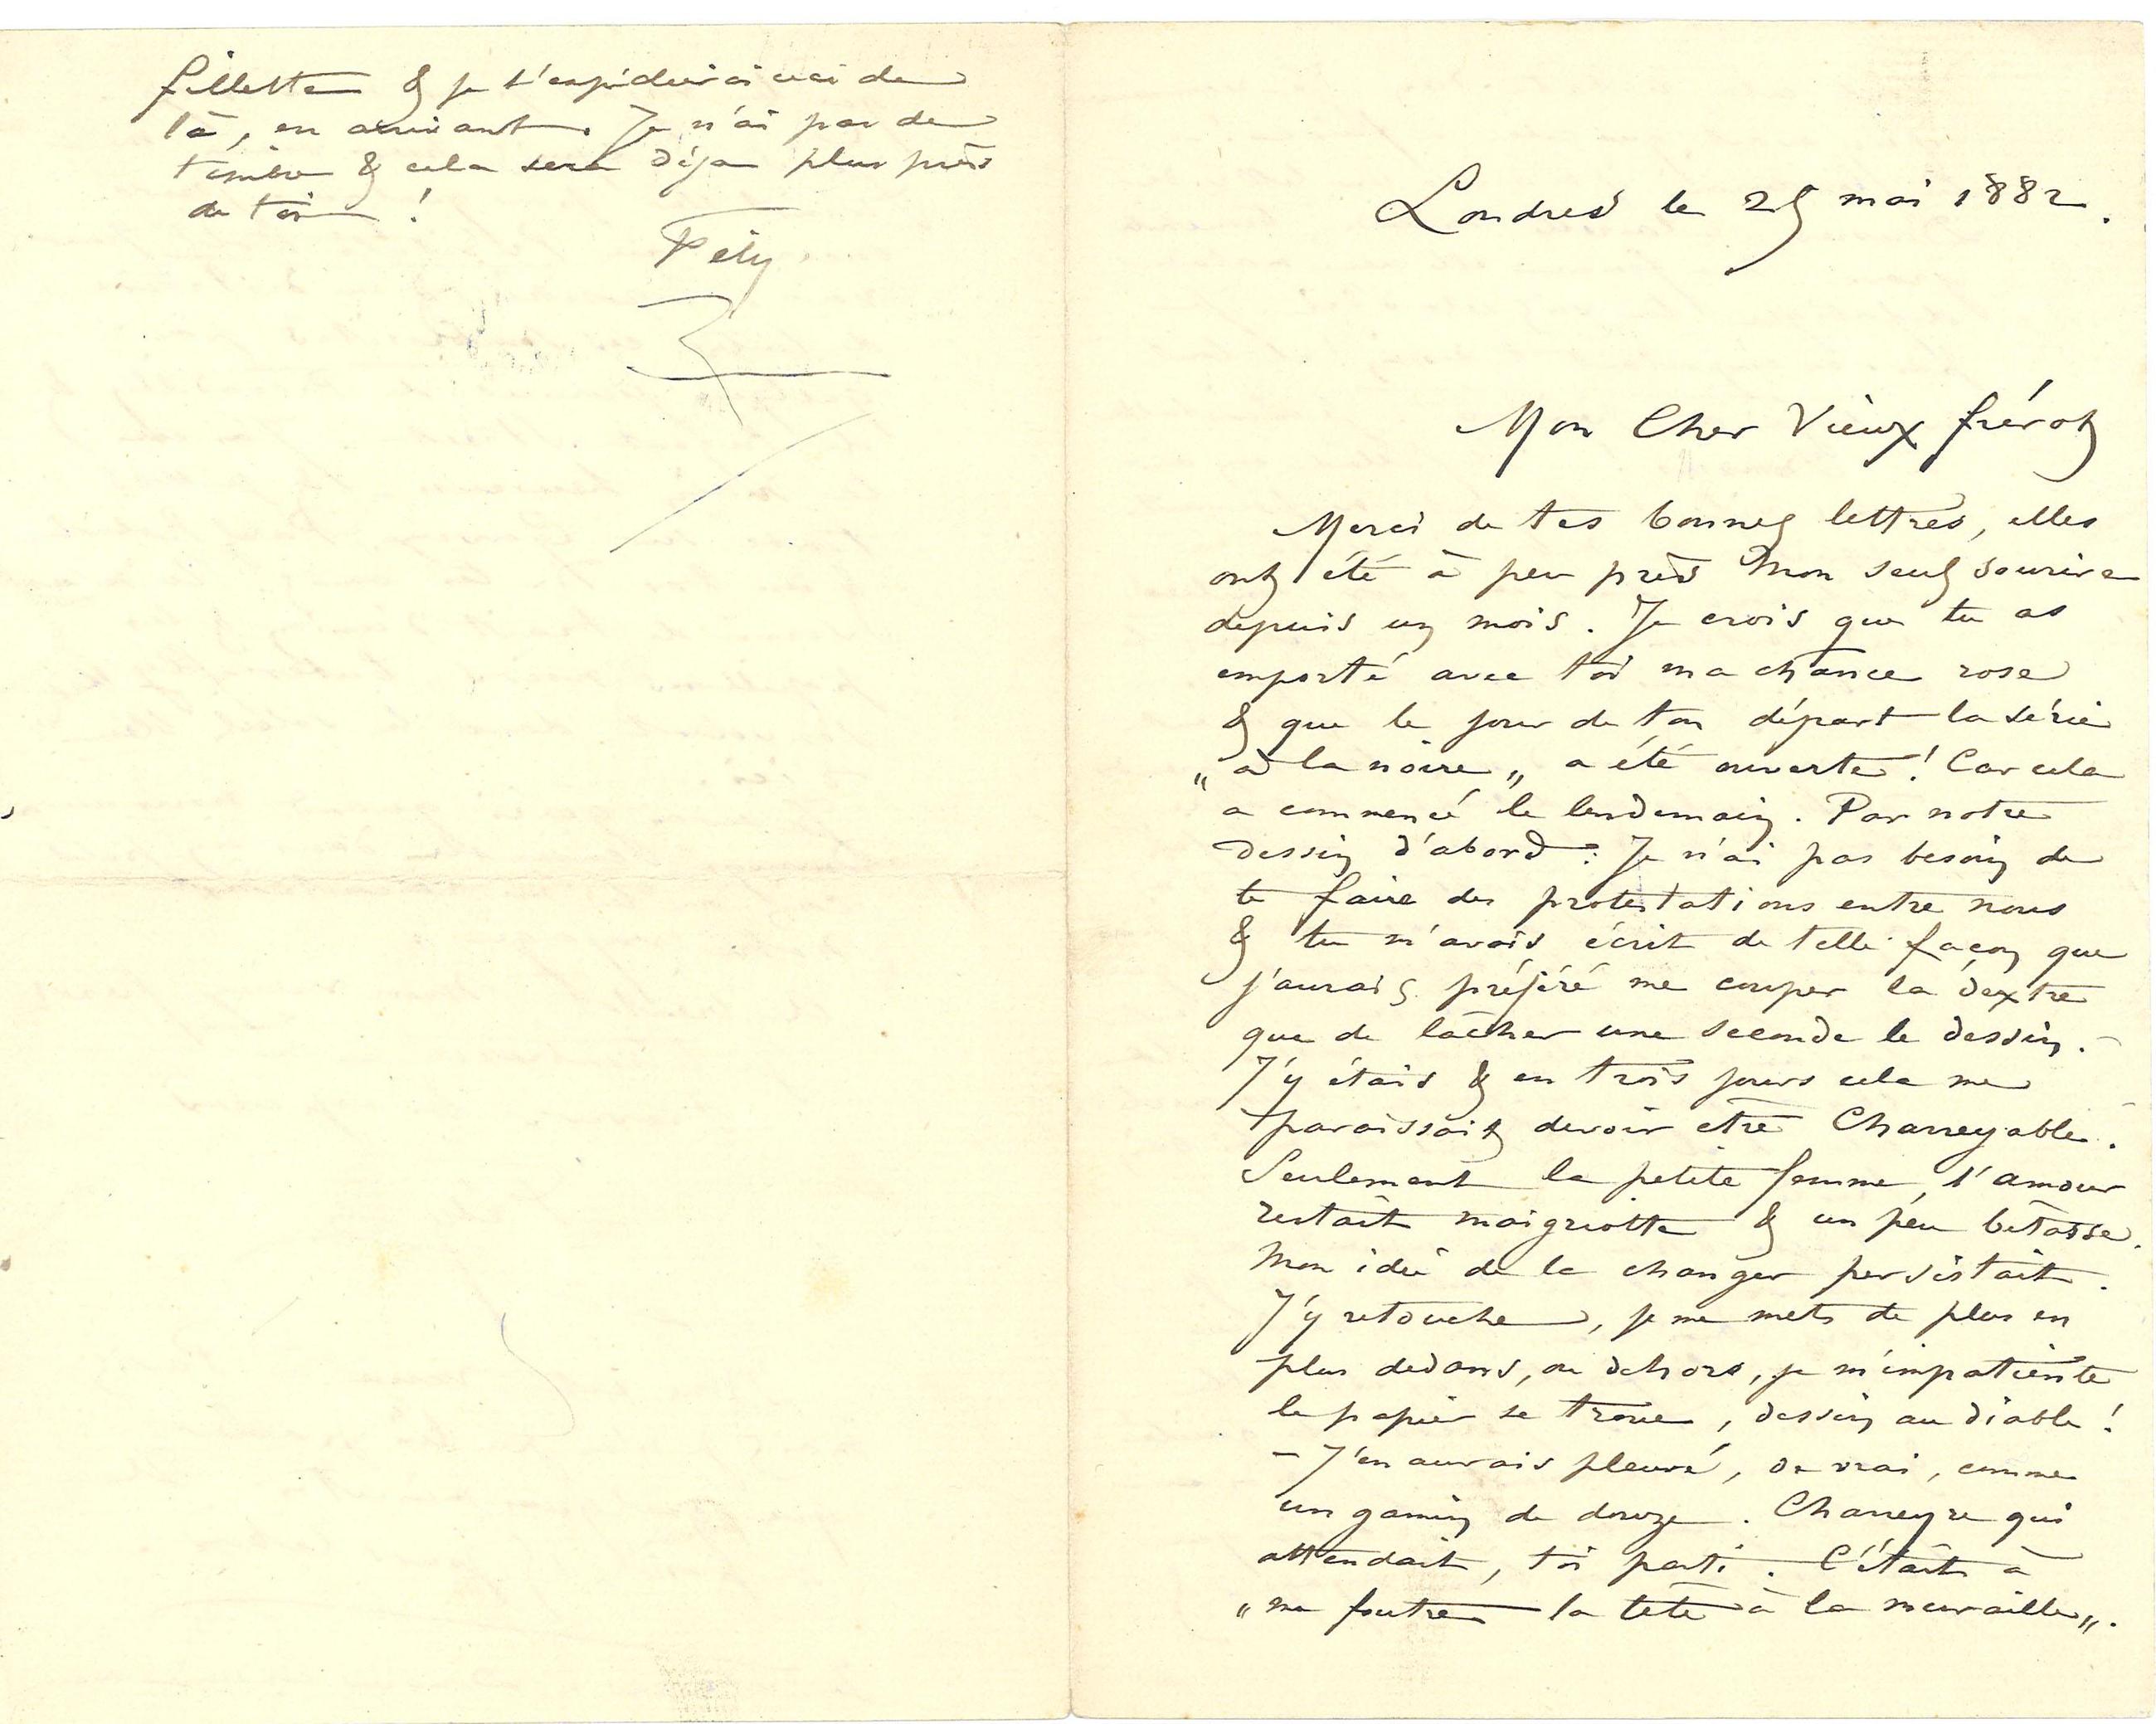 fillette & je t'expédierai ceci de
là, en arrivant. Je n'ai pas de
timbre & cela sera déjà plus près
de toi !
Fély
Londres le 25 mai 1882.
Mon Cher Vieux frérot
Merci de tes bonnes lettres, elles
ont été à peu près mon seul sourire
depuis un mois. Je crois que tu as
emporté avec toi ma chance rose
& que le jour de ton départ la série
„à la noire„ a été ouverte ! Car cela
a commencé le lendemain. Par notre
dessin d'abord : Je n'ai pas besoin de
te faire des protestations entre nous
& tu m'avais écrit de telle façon que
j'aurais préféré me couper la dextre
que de lâcher une seconde le dessin.
J'y étais & en trois jours cela me
paraissait devoir être Charreyable.
Seulement la petite femme, l'amour
restait maigriotte & un peu bêtasse.
Mon idée de la changer persistait.
J'y retouche, je me mets de plus en
plus dedans, ou dehors, je m'impatiente
le papier se troue, dessin au diable !
– J'en aurais pleuré, de vrai, comme
un gamin de douze. Charreyre qui
attendait, toi parti. C'était à
„me foutre la tête à la muraille„.